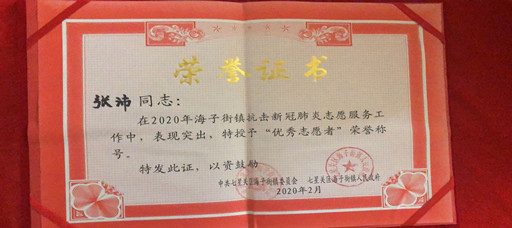 荣誉证书
张沛同志：
在2020年海子街镇抗击新冠肺炎志愿服务工
作中，表现突出，特授予“优秀志愿者”荣誉称
号。
特发此证，以资鼓励
中共七星关区海子街镇委员会 七星关区海子街镇人民政府
2020年2月